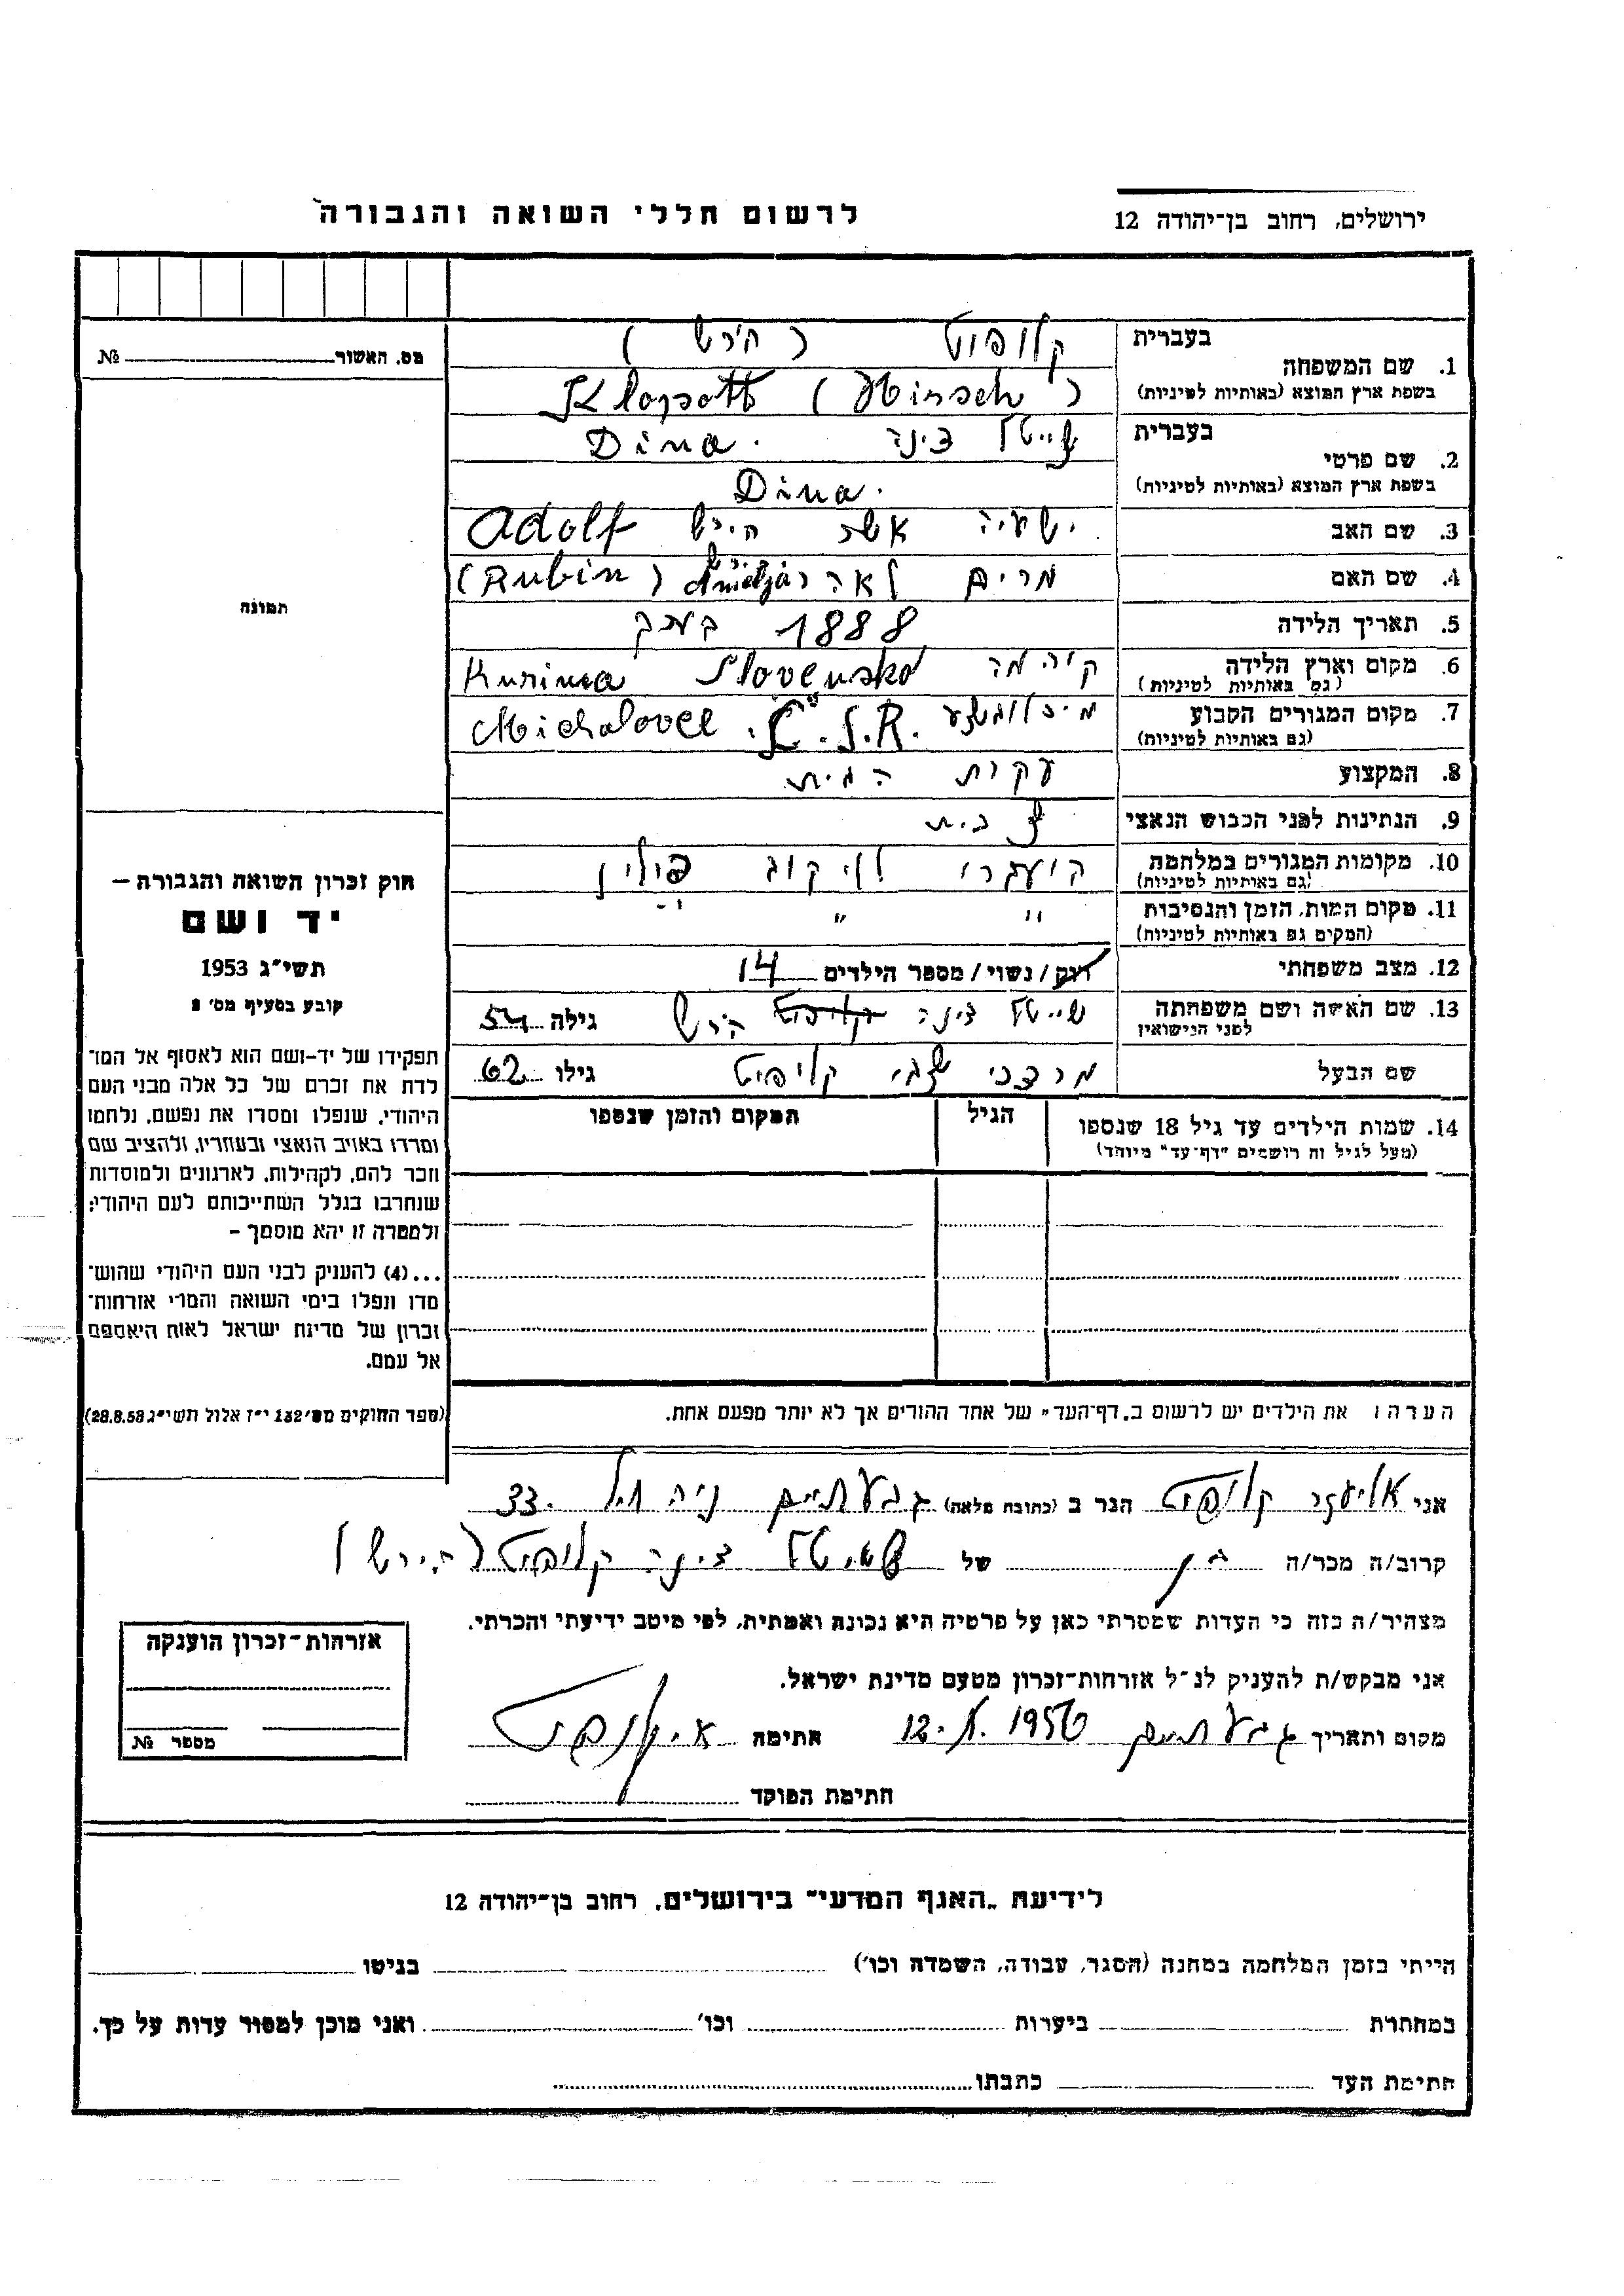 ירושלים, רחוב בן־יהודה 12
לרשום חללי השואה והגבורה
בעברית
1. שם המשפחה
בשפת ארץ המוצא (באותיות לטיניות)
קלופוט (הירש)
Klopott (Hirsch)
בעברית
2. שם פרטי
בשפת ארץ המוצא (באותיות לטיניות)
שייטל דינה Dina.
Dina.
3. שם האב
ישעיה אשר הירש Adolf
4. שם האם
מרים לאה (Rubin)
5. תאריך הלידה
1888 בערך
6. מקום וארץ הלידה
(גם באותיות לטיניות)
קורימה Kurima Slovensko
7. מקום המגורים הקבוע
(גם באותיות לטיניות)
Michalovce Č.S.R.
8. המקצוע
עקרת הבית
9. הנתינות לפני הכבוש הנאצי
10. מקומות המגורים במלחמה
(גם באותיות לטיניות)
פולין
11. מקום המות, הזמן והנסיבות
(המקום גם באותיות לטיניות)
" " "
12. מצב משפחתי
רווק/נשוי/מספר הילדים 14
13. שם האשה ושם משפחתה
לפני הנישואין
שייטל דינה קלופוט הירש גילה 54
שם הבעל
מרדכי קלופוט גילו 62
14. שמות הילדים עד גיל 18 שנספו
(מעל לגיל זה רושמים "דף־עד" מיוחד)
הגיל
המקום והזמן שנספו
הערה: את הילדים יש לרשום ב„דף־העד" של אחד ההורים אך לא יותר מפעם אחת.
מס. האשור № 
תמונה
חוק זכרון השואה והגבורה –
יד ושם
תשי"ג 1953
קובע בסעיף מס' 2
תפקידו של יד–ושם הוא לאסוף אל המו־
לדת את זכרם של כל אלה מבני העם
היהודי, שנפלו ומסרו את נפשם, נלחמו
ומרדו באויב הנאצי ובעוזריו, ולהציב שם
וזכר להם, לקהילות, לארגונים ולמוסדות
שנחרבו בגלל השתייכותם לעם היהודי;
ולמטרה זו יהא מוסמך –
...(4) להעניק לבני העם היהודי שהוש־
מדו ונפלו בימי השואה והמרי אזרחות־
זכרון של מדינת ישראל לאות היאספם
אל עמם.
(ספר החוקים מס' 132 י"ז אלול תשי"ג 28.8.53)
אני אליעזר קלופוט הגר ב (כתובת מלאה) גבעתיים 33
קרוב/ה מכר/ה בן של שייטל דינה קלופוט (הירש)
מצהיר/ה בזה כי העדות שמסרתי כאן על פרטיה היא נכונה ואמתית, לפי מיטב ידיעתי והכרתי.
אני מבקש/ת להעניק לנ"ל אזרחות־זכרון מטעם מדינת ישראל.
מקום ותאריך גבעתיים 12.X.1956 חתימה א. קלופוט
חתימת הפוקד
אזרחות־זכרון הוענקה
מספר №
לידיעת „האגף המדעי" בירושלים, רחוב בן־יהודה 12
הייתי בזמן המלחמה במחנה (הסגר, עבודה, השמדה וכו') בגיטו
במחתרת ביערות וכו' ואני מוכן למסור עדות על כך.
חתימת העד כתבתו